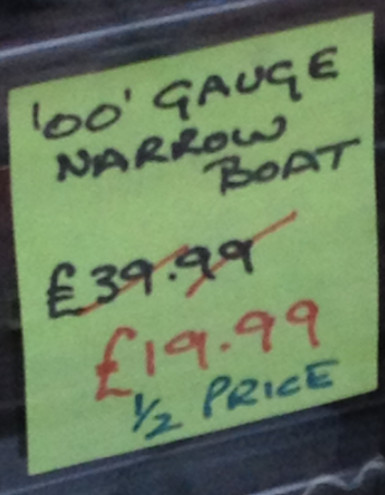 'OO' GAUGE
NARROW
BOAT
£39.99
£19.99
½ PRICE